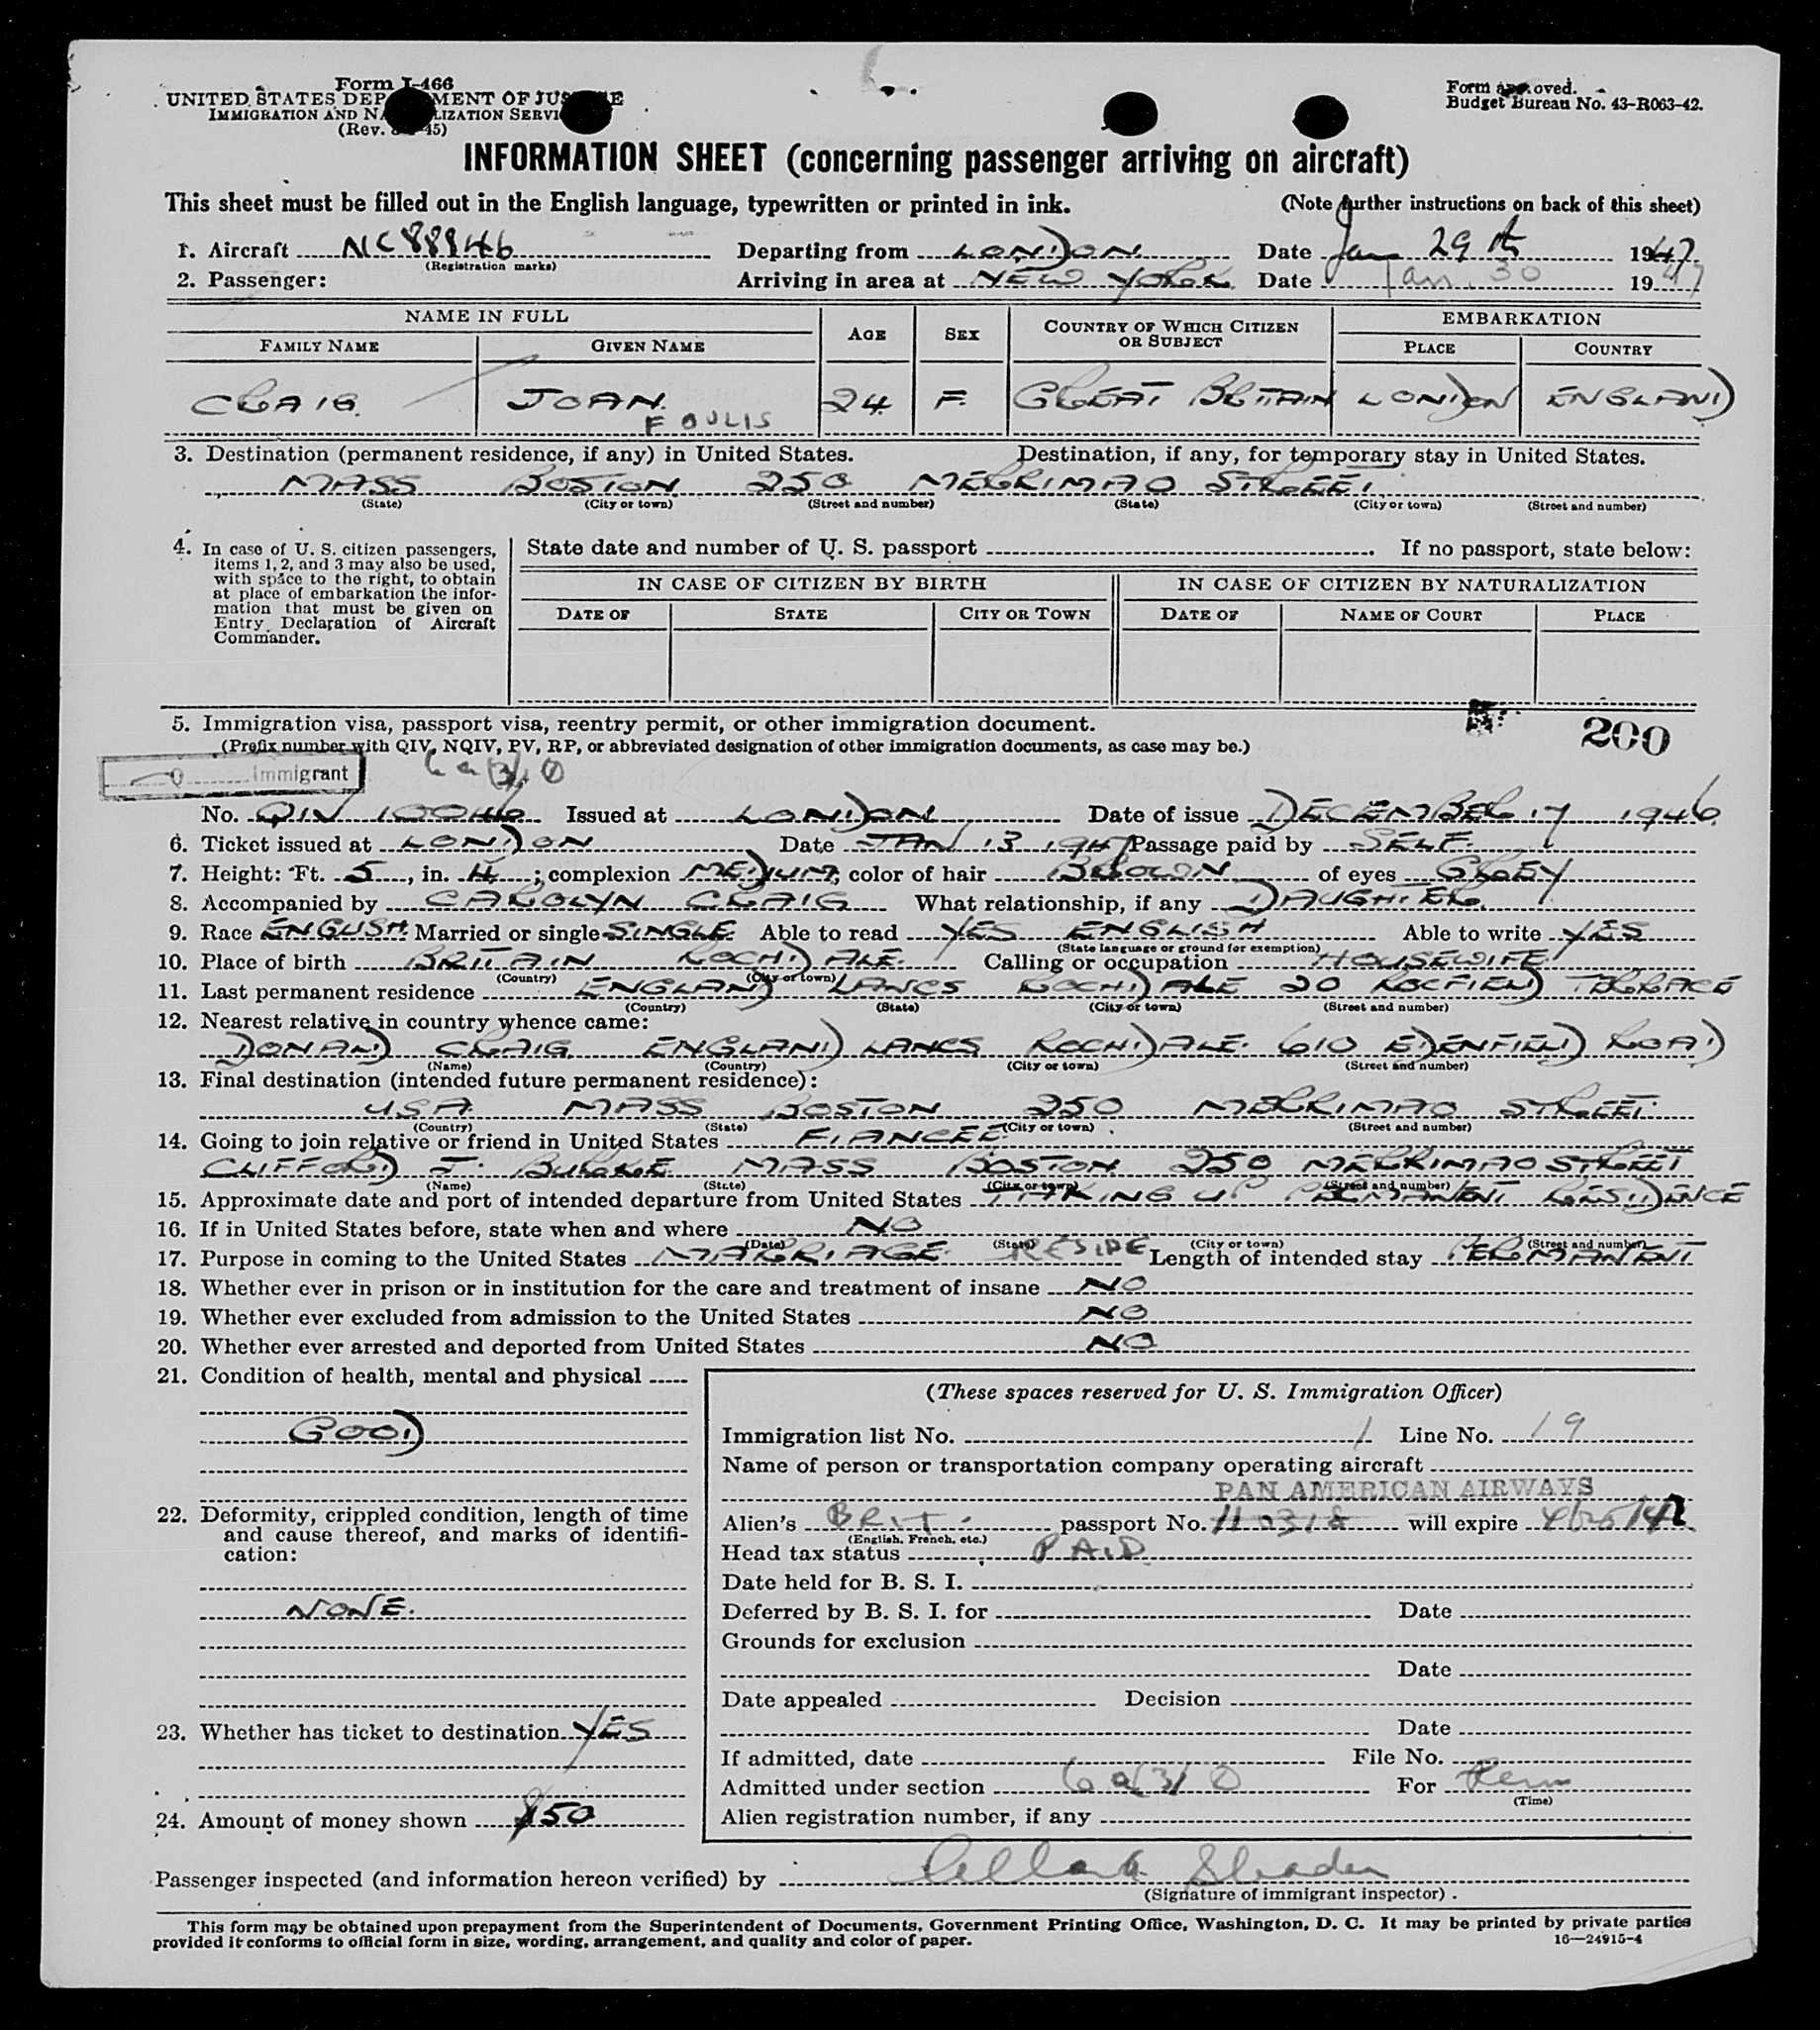 Form I-466
UNITED STATES DEP MENT OF JUS E
IMMIGRATION AND NA LIZATION SERVI
(Rev. 45)
Form approved.
Budget Bureau No. 43-R063-42.
INFORMATION SHEET (concerning passenger arriving on aircraft)
This sheet must be filled out in the English language, typewritten or printed in ink. (Note further instructions on back of this sheet)
1. Aircraft NC88846 Departing from LONDON Date Jan 29th 1947
(Registration marks)
2. Passenger: Arriving in area at NEW YORK Date Jan. 30 1947
NAME IN FULL AGE SEX COUNTRY OF WHICH CITIZEN OR SUBJECT EMBARKATION
FAMILY NAME GIVEN NAME PLACE COUNTRY
CRAIG. JOAN. 24 F. GREAT BRITAIN LONDON ENGLAND
FOULIS
3. Destination (permanent residence, if any) in United States. Destination, if any, for temporary stay in United States.
MASS BOSTON 250 MERRIMAO STREET.
(State) (City or town) (Street and number) (State) (City or town) (Street and number)
4. In case of U. S. citizen passengers,
items 1, 2, and 3 may also be used,
with space to the right, to obtain
at place of embarkation the infor-
mation that must be given on
Entry Declaration of Aircraft
Commander.
State date and number of U. S. passport If no passport, state below:
IN CASE OF CITIZEN BY BIRTH IN CASE OF CITIZEN BY NATURALIZATION
DATE OF STATE CITY OR TOWN DATE OF NAME OF COURT PLACE
5. Immigration visa, passport visa, reentry permit, or other immigration document. 200
(Prefix number with QIV, NQIV, PV, RP, or abbreviated designation of other immigration documents, as case may be.)
Q Immigrant 6a(3) Q
No. QIV 10046 Issued at LONDON Date of issue DECEMBER 17 1946
6. Ticket issued at LONDON Date JAN 13 1947 Passage paid by SELF.
7. Height: Ft. 5, in. 4; complexion MEDIUM; color of hair BROWN of eyes GREY
8. Accompanied by CAROLYN CRAIG What relationship, if any DAUGHTER.
9. Race ENGLISH. Married or single SINGLE Able to read YES ENGLISH Able to write YES
(State language or ground for exemption)
10. Place of birth BRITAIN ROCHDALE. Calling or occupation HOUSEWIFE
(Country) (City or town)
11. Last permanent residence ENGLAND LANCS ROCHDALE 20 ROEFIELD TERRACE
(Country) (State) (City or town) (Street and number)
12. Nearest relative in country whence came:
DONALD CRAIG ENGLAND LANCS ROCHDALE. 610 EDENFIELD ROAD
(Name) (Country) (City or town) (Street and number)
13. Final destination (intended future permanent residence):
USA MASS BOSTON 250 MERRIMAO STREET.
(Country) (State) (City or town) (Street and number)
14. Going to join relative or friend in United States FIANCEE.
CLIFFORD J. BURKE MASS BOSTON 250 MERRIMAO STREET
(Name) (State) (City or town) (Street and number)
15. Approximate date and port of intended departure from United States TAKING UP PERMANENT RESIDENCE
16. If in United States before, state when and where NO
(Date) (State) (City or town) (Street and number)
17. Purpose in coming to the United States MARRIAGE. RESIDE Length of intended stay PERMANENT
18. Whether ever in prison or in institution for the care and treatment of insane NO
19. Whether ever excluded from admission to the United States NO
20. Whether ever arrested and deported from United States NO
21. Condition of health, mental and physical
GOOD
22. Deformity, crippled condition, length of time
and cause thereof, and marks of identifi-
cation:
NONE.
23. Whether has ticket to destination YES
24. Amount of money shown $50
(These spaces reserved for U. S. Immigration Officer)
Immigration list No. 1 Line No. 19
Name of person or transportation company operating aircraft
PAN AMERICAN AIRWAYS
Alien's BRIT. passport No. will expire
(English, French, etc.)
Head tax status PAID
Date held for B. S. I.
Deferred by B. S. I. for Date
Grounds for exclusion
Date
Date appealed Decision
Date
If admitted, date File No.
Admitted under section 6a(3) Q For Perm
(Time)
Alien registration number, if any
Passenger inspected (and information hereon verified) by
(Signature of immigrant inspector).
This form may be obtained upon prepayment from the Superintendent of Documents, Government Printing Office, Washington, D. C. It may be printed by private parties
provided it conforms to official form in size, wording, arrangement, and quality and color of paper. 16—24915-4